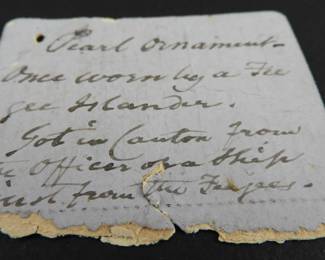 Pearl Ornament-
Once worn by a Fee
gee Islander.
Got in Canton from
an Officer on a Ship
just from the Feejees.